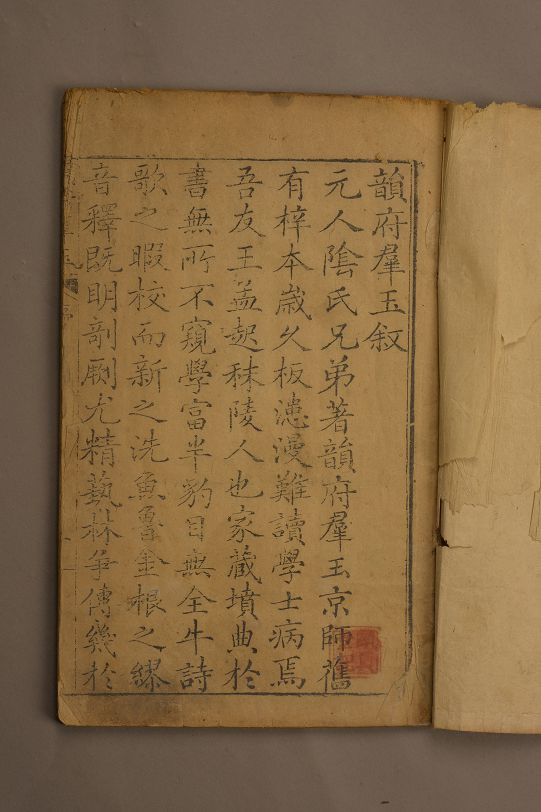 韻府羣玉叙
元人陰氏兄弟著韻府羣玉京師舊
有梓本嵗久板漶漫難讀學士病焉
吾友王孟起秣陵人也家藏墳典於
書無所不窺學富半豹目無全牛詩
歌之暇校而新之洗魚魯金根之繆
音釋既明剞劂尤精藝林争傳幾於